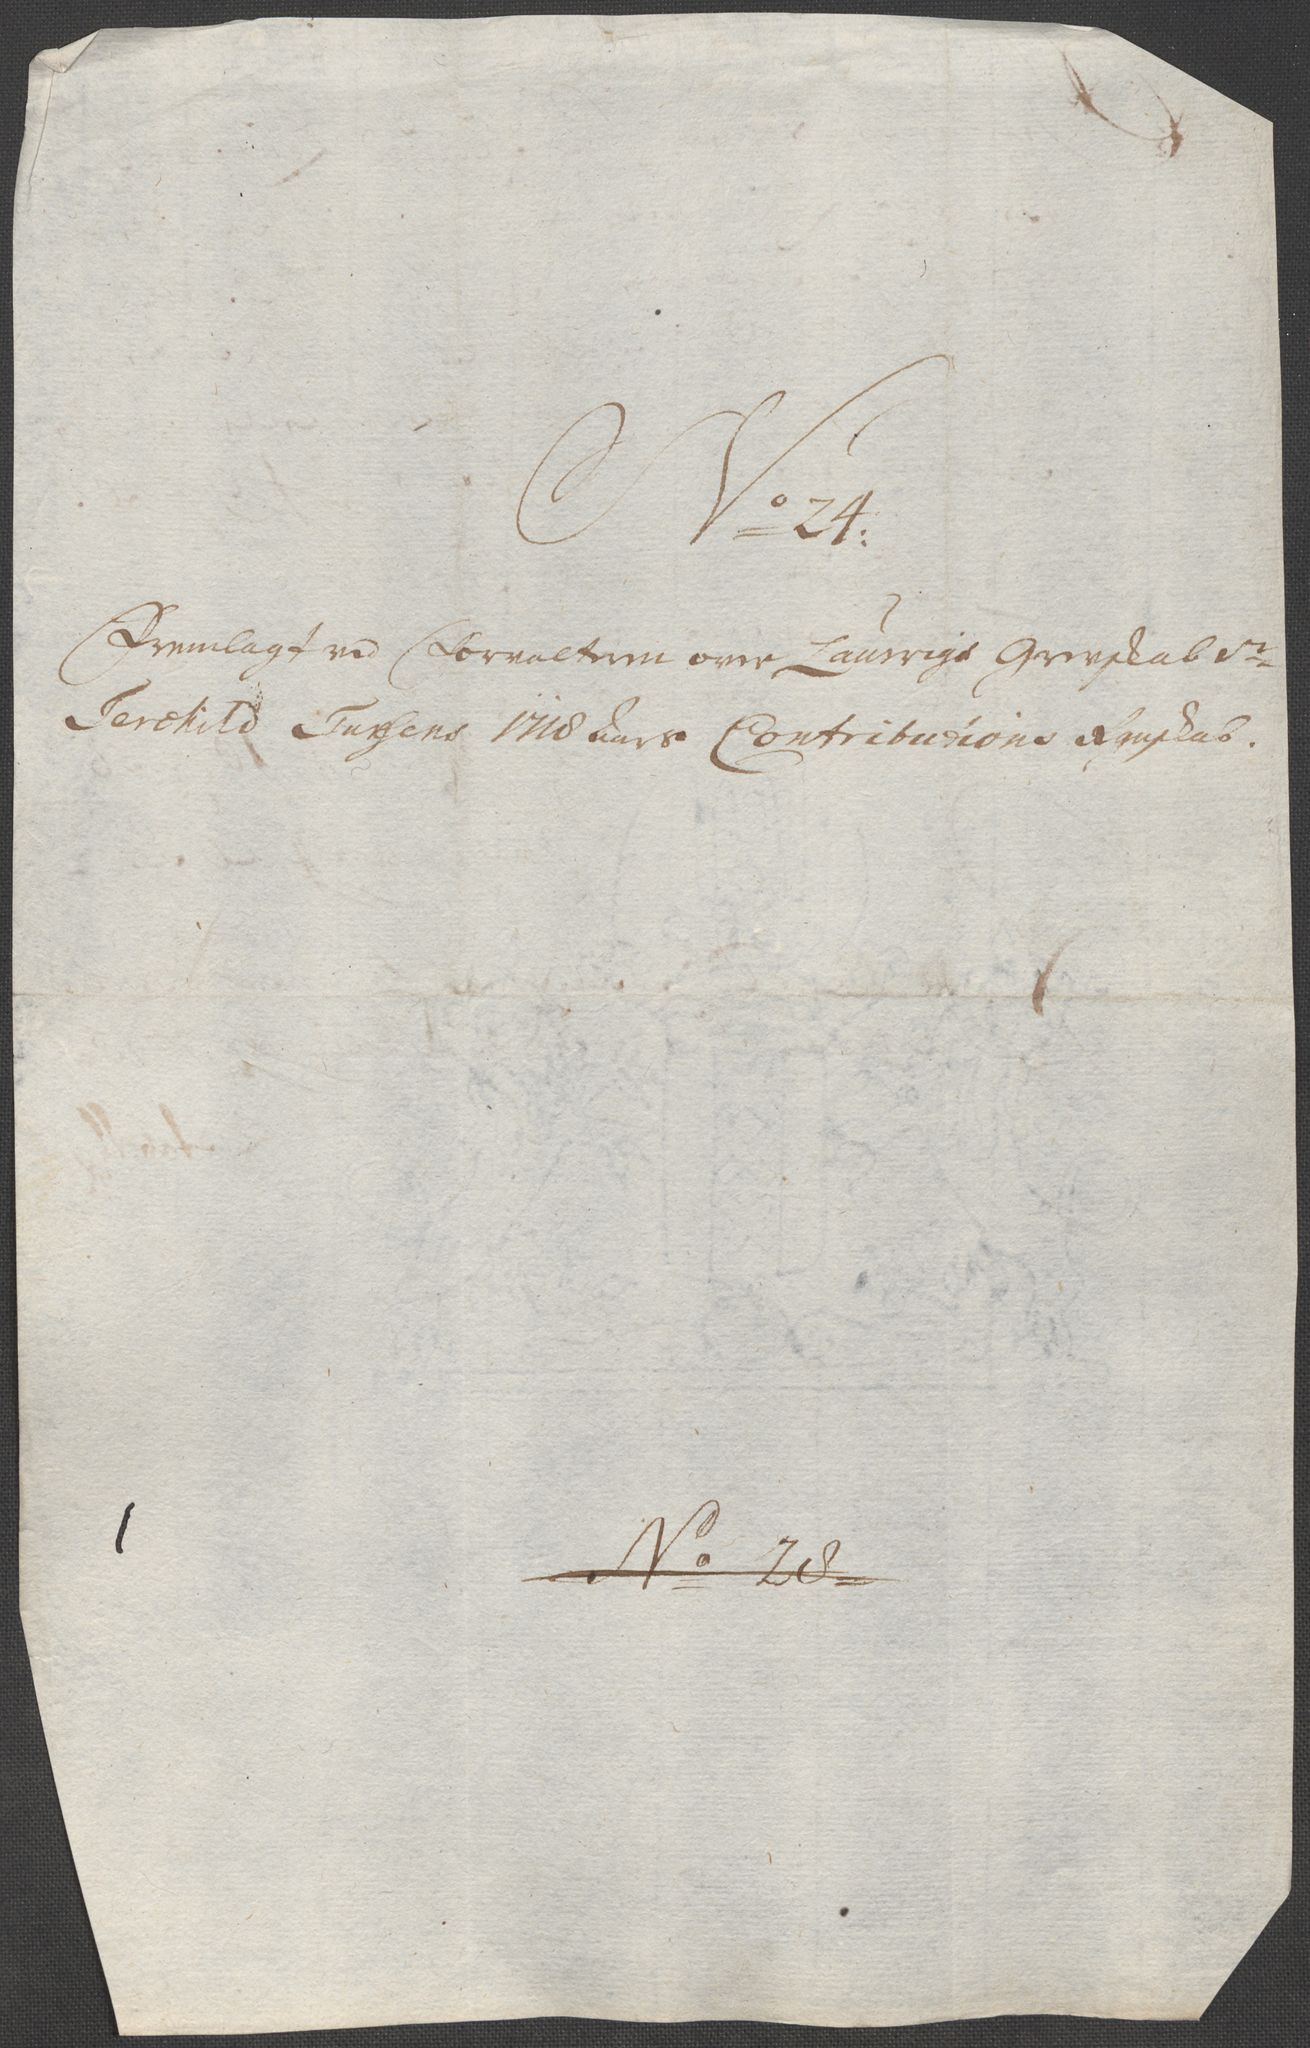 No 24:
Fremlagt ved Forvalteren over Laurvigs Grevskab Sr
Terchild Jussens 1718 Aars Contributions Regnskab.
No 28